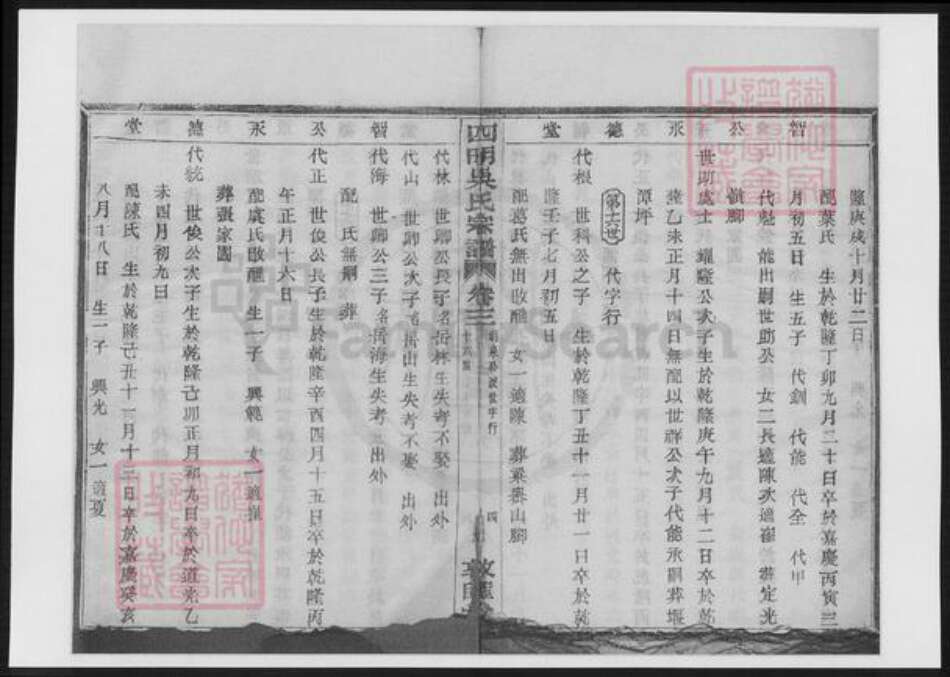 隆庚戌十月廿二日
配葉氏　生於乾隆丁卯九月二十日卒於嘉慶丙寅三
智　月初五日　生五子　代釗　代能　代全　代甲
代魁　能出嗣世助公　女二長適陳次適崔　葬定光
公　嶺脚
世助處士　燿隆公次子生於乾隆庚午九月十二日卒於乾
永　隆乙未正月十四日無配以世祥公次子代能承嗣葬堰
潭坪
德　第十七世　代字行
代根　世科公之子　生於乾隆丁丑十一月廿一日卒於乾
堂　隆壬子七月初五日
配葛氏無出改醮　女一適陳　葬梁嶴山腳
四明吳氏宗譜　卷三　世字行　四　敦
代林　世卿公長子名岳林生失考不娶　出外
代山　世卿公次子名岳山生失考不娶　出外
智　代海　世卿公三子名岳海生失考　出外
配　氏無嗣　葬
公　代正　世俊公長子生於乾隆辛酉四月十五日卒於乾隆丙
午正月十六日
永　配虞氏改醮　生一子　興範　女一適崔
葬張家園
德　代統　世俊公次子生於乾隆己卯正月初九日卒於道光乙
未四月初九日
堂　配陳氏　生於乾隆己丑十二月十二日卒於嘉慶癸亥
八月十八日　生一子　興光　女一適夏
FamilySearch